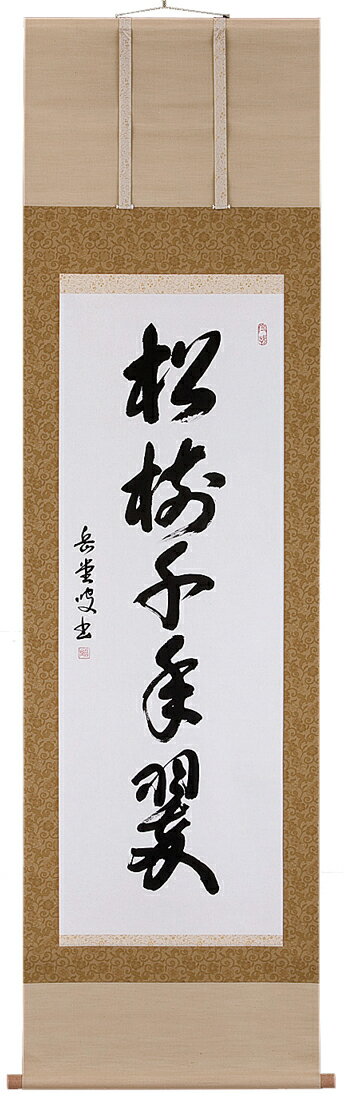 松樹千年翠
岳堂叟书